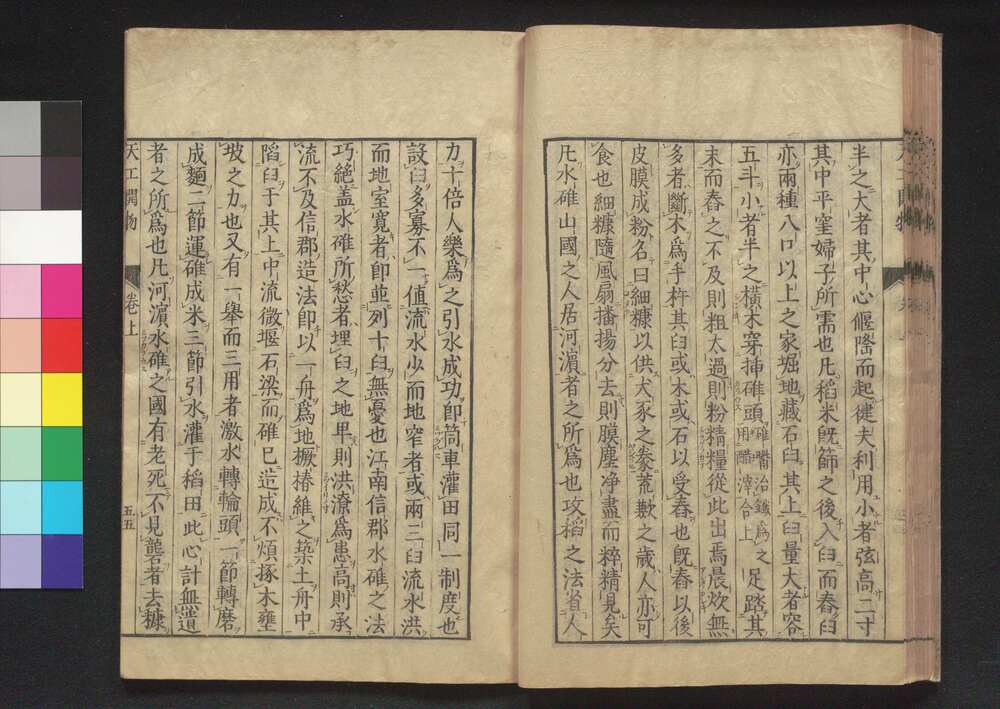 半之大者其中心偃隆而起徤夫利用小者弦高二寸
其中平窐婦子所需也凡稻米既篩之後入臼而舂臼
亦兩種八口以上之家堀地藏石臼其上臼量大者容
五斗小者半之橫木穿揷碓頭碓嘴治鐵爲之用醋滓合上足踏其
末而舂之不及則粗太過則粉精糧從此出焉晨炊無
多者斷木爲手杵其臼或木或石以受舂也既舂以後
皮膜成粉名曰細糠以供犬豕之豢荒歉之歲人亦可
食也細糠隨風扇播揚分去則膜塵净盡而粹精見矣
凡水碓山國之人居河濵者之所爲也攻稻之法省人
力十倍人樂爲之引水成功卽筒車灌田同一制度也
設臼多寡不一値流水少而地窄者或兩三臼流水洪
而地室寛者卽並列十臼無憂也江南信郡水碓之法
巧絶盖水碓所愁者埋臼之地卑則洪潦爲患高則承
流不及信郡造法卽以一舟爲地橛椿維之築土舟中
陷臼于其上中流微堰石梁而碓已造成不煩椓木壅
坡之力也又有一舉而三用者激水轉輪頭一節轉磨
成麵二節運碓成米三節引水灌于稻田此心計無遺
者之所爲也凡河濵水碓之國有老死不見礱者去糠
天工開物
卷上
五五